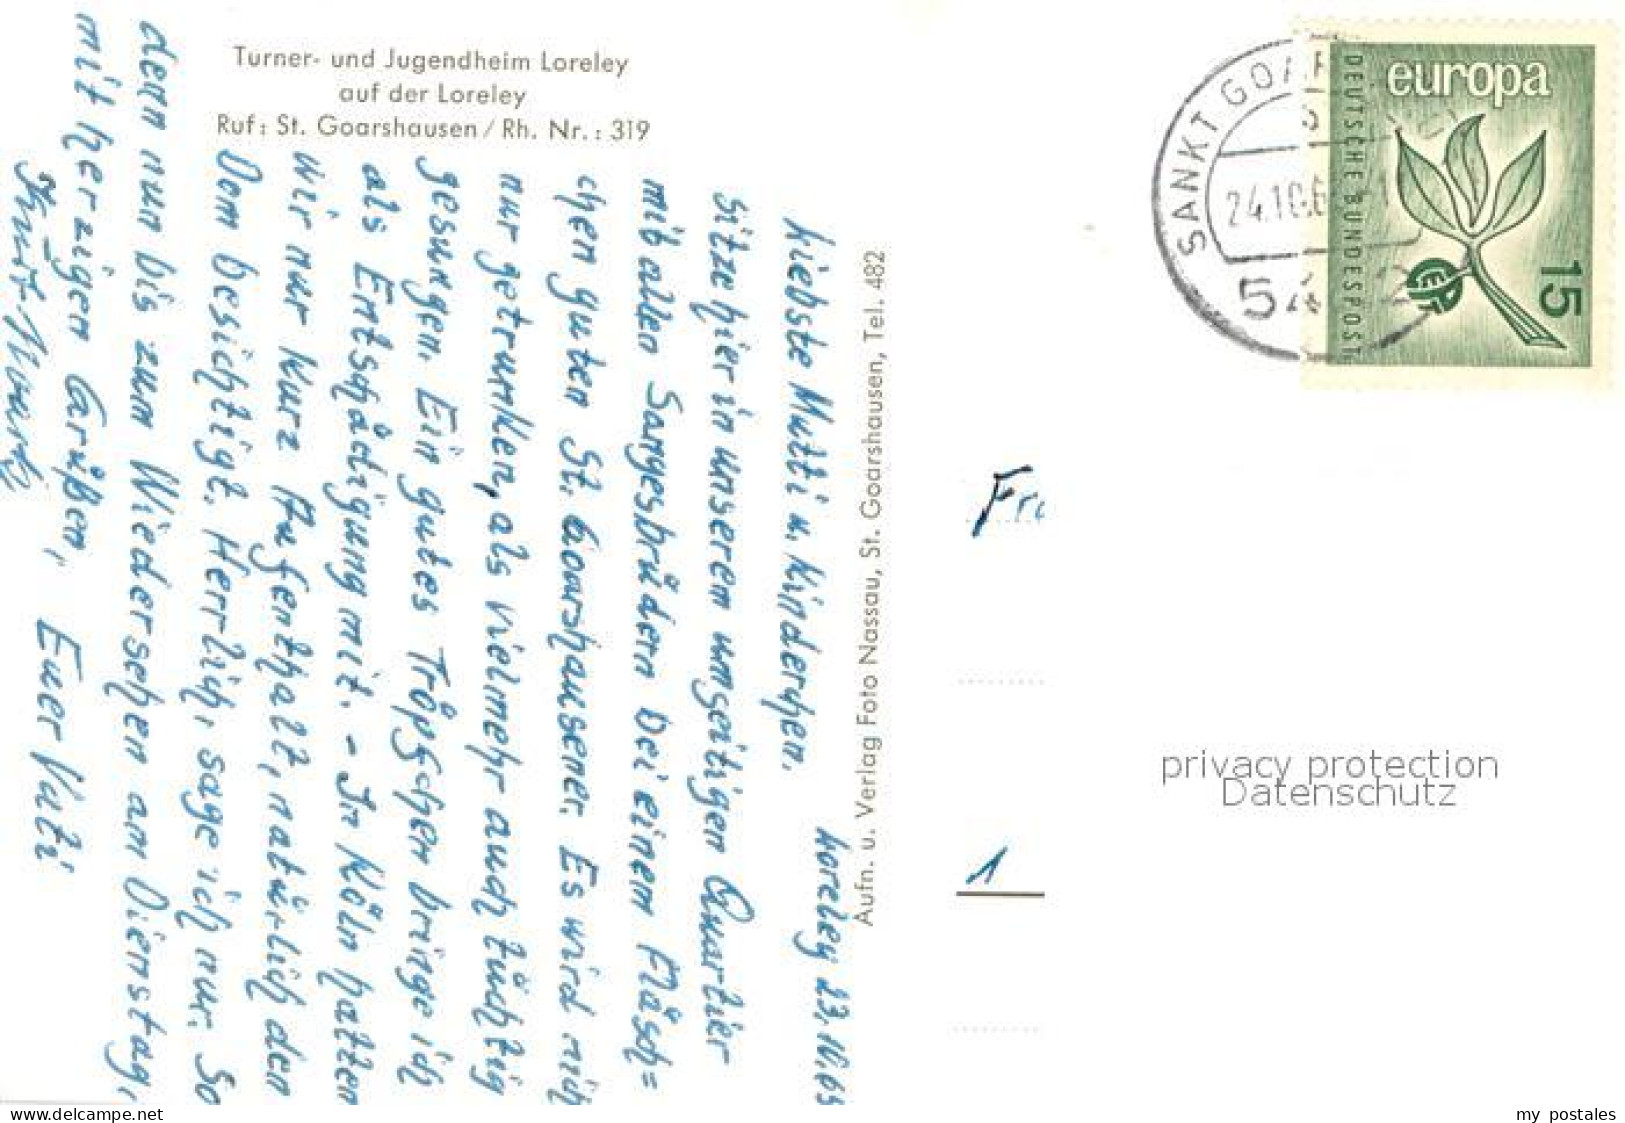 Turner- und Jugendheim Loreley
auf der Loreley
Ruf: St. Goarshausen / Rh. Nr.: 319
Loreley 23.10.65
Liebste Mutti u. Kinderchen.
Sitze hier in unserem umseitigen Quartier
mit allen Sangesbrüdern bei einem Fläsch=
chen guten St. Goarshausener. Es wird nich
nur getrunken, als vielmehr auch tüchtig
gesungen. Ein gutes Tröpfchen bringe ich
als Entschädigung mit. - In Köln hatten
wir nur kurz Aufenthalt, natürlich den
Dom besichtigt. Herrlich, sage ich nur. So
denn nun bis zum Wiedersehen am Dienstag,
mit herzigen Grüßen,
Euer Vati
Aufn. u. Verlag Foto Nassau, St. Goarshausen, Tel. 482
SANKT GOAR
24.10.6
54
europa
DEUTSCHE BUNDESPOST
15
CEPT
Fra
1
privacy protection
Datenschutz
www.delcampe.net
my_postales